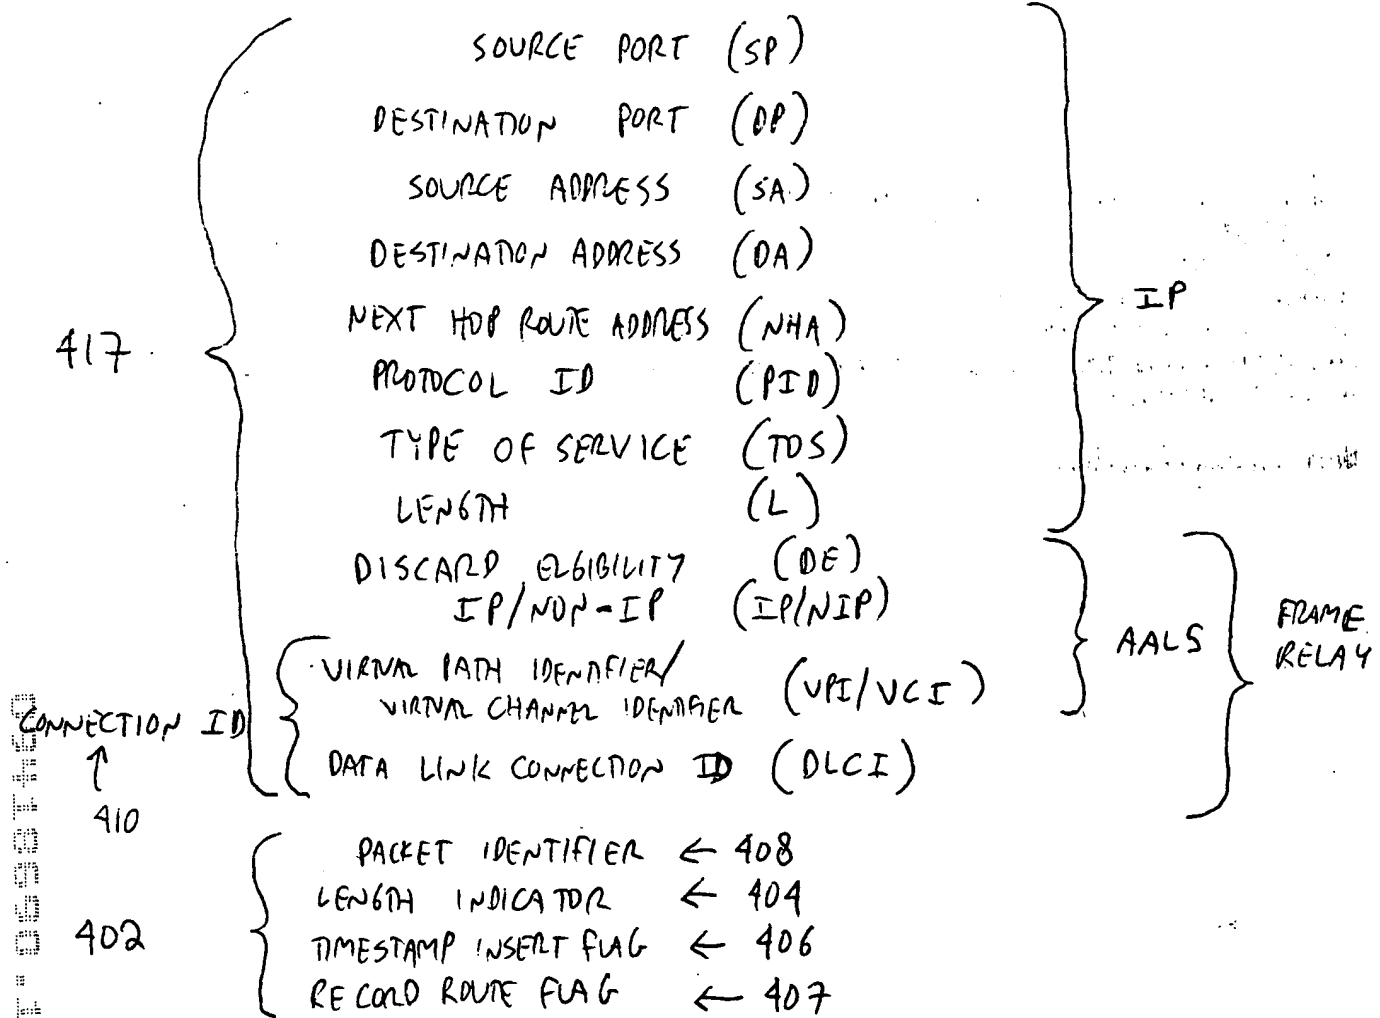 SOURCE PORT (SP)
DESTINATION PORT (DP)
SOURCE ADDRESS (SA)
DESTINATION ADDRESS (DA)
NEXT HOP ROUTE ADDRESS (NHA)
IP
417
PROTOCOL ID (PID)
TYPE OF SERVICE (TOS)
LENGTH (L)
DISCARD ELGIBILITY (DE)
IP/NON-IP (IP/NIP)
AAL5
FRAME
RELAY
VIRTUAL PATH IDENTIFIER/
VIRTUAL CHANNEL IDENTIFIER (VPI/VCI)
CONNECTION ID
DATA LINK CONNECTION ID (DLCI)
410
PACKET IDENTIFIER ← 408
LENGTH INDICATOR ← 404
402
TIMESTAMP INSERT FLAG ← 406
RECORD ROUTE FLAG ← 407